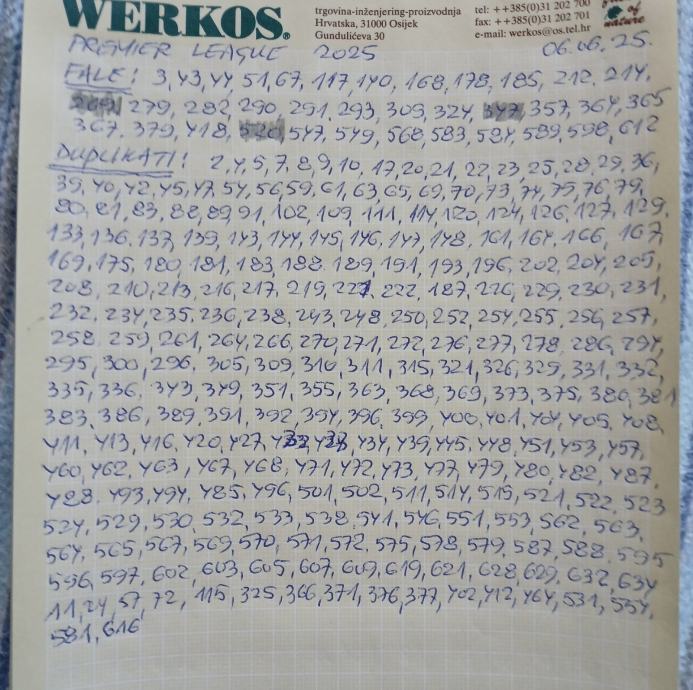 WERKOS.
trgovina-inženjering-proizvodnja
Hrvatska, 31000 Osijek
Gundulićeva 30
tel: ++385(0)31 202 700
fax: ++385(0)31 202 701
e-mail: werkos@os.tel.hr
of
nature
PREMIER LEAGUE 2025 06.06.25.
FALE: 3, 43, 44, 51, 67, 117, 140, 168, 178, 185, 212, 214,
279, 282, 290, 291, 293, 309, 324, 347, 357, 364, 365
367, 379, 418, 520, 547, 549, 568, 583, 584, 589, 598, 612
DUPLIKATI: 2, 4, 5, 7, 8, 9, 10, 17, 20, 21, 22, 23, 25, 28, 29, 36,
39, 40, 42, 45, 47, 54, 56, 59, 61, 63, 65, 69, 70, 73, 74, 75, 76, 79,
80, 81, 83, 88, 89, 91, 102, 109, 111, 114, 120, 124, 126, 127, 129,
133, 136, 137, 139, 143, 144, 145, 146, 147, 148, 161, 164, 166, 167
169, 175, 180, 181, 183, 188, 189, 191, 193, 196, 202, 204, 205,
208, 210, 213, 216, 217, 219, 221, 222, 187, 226, 229, 230, 231,
232, 234, 235, 236, 238, 243, 248, 250, 252, 254, 255, 256, 257,
258, 259, 261, 264, 266, 270, 271, 272, 276, 277, 278, 286, 294,
295, 300, 296, 305, 309, 310, 311, 315, 321, 326, 329, 331, 332,
335, 336, 343, 349, 351, 355, 363, 368, 369, 373, 375, 380, 381
383, 386, 389, 391, 392, 394, 396, 399, 400, 401, 404, 405, 408,
411, 413, 416, 420, 427, 434, 439, 445, 448, 451, 453, 457,
460, 462, 463, 467, 468, 471, 472, 473, 477, 479, 480, 482, 487,
488, 493, 494, 485, 496, 501, 502, 511, 514, 515, 521, 522, 523
524, 529, 530, 532, 533, 538, 541, 546, 551, 553, 562, 563,
564, 565, 567, 569, 570, 571, 572, 575, 578, 579, 587, 588, 595
596, 597, 602, 603, 605, 607, 609, 619, 621, 628, 629, 632, 634
11, 24, 57, 72, 115, 325, 366, 371, 376, 377, 402, 412, 464, 531, 554,
581, 616